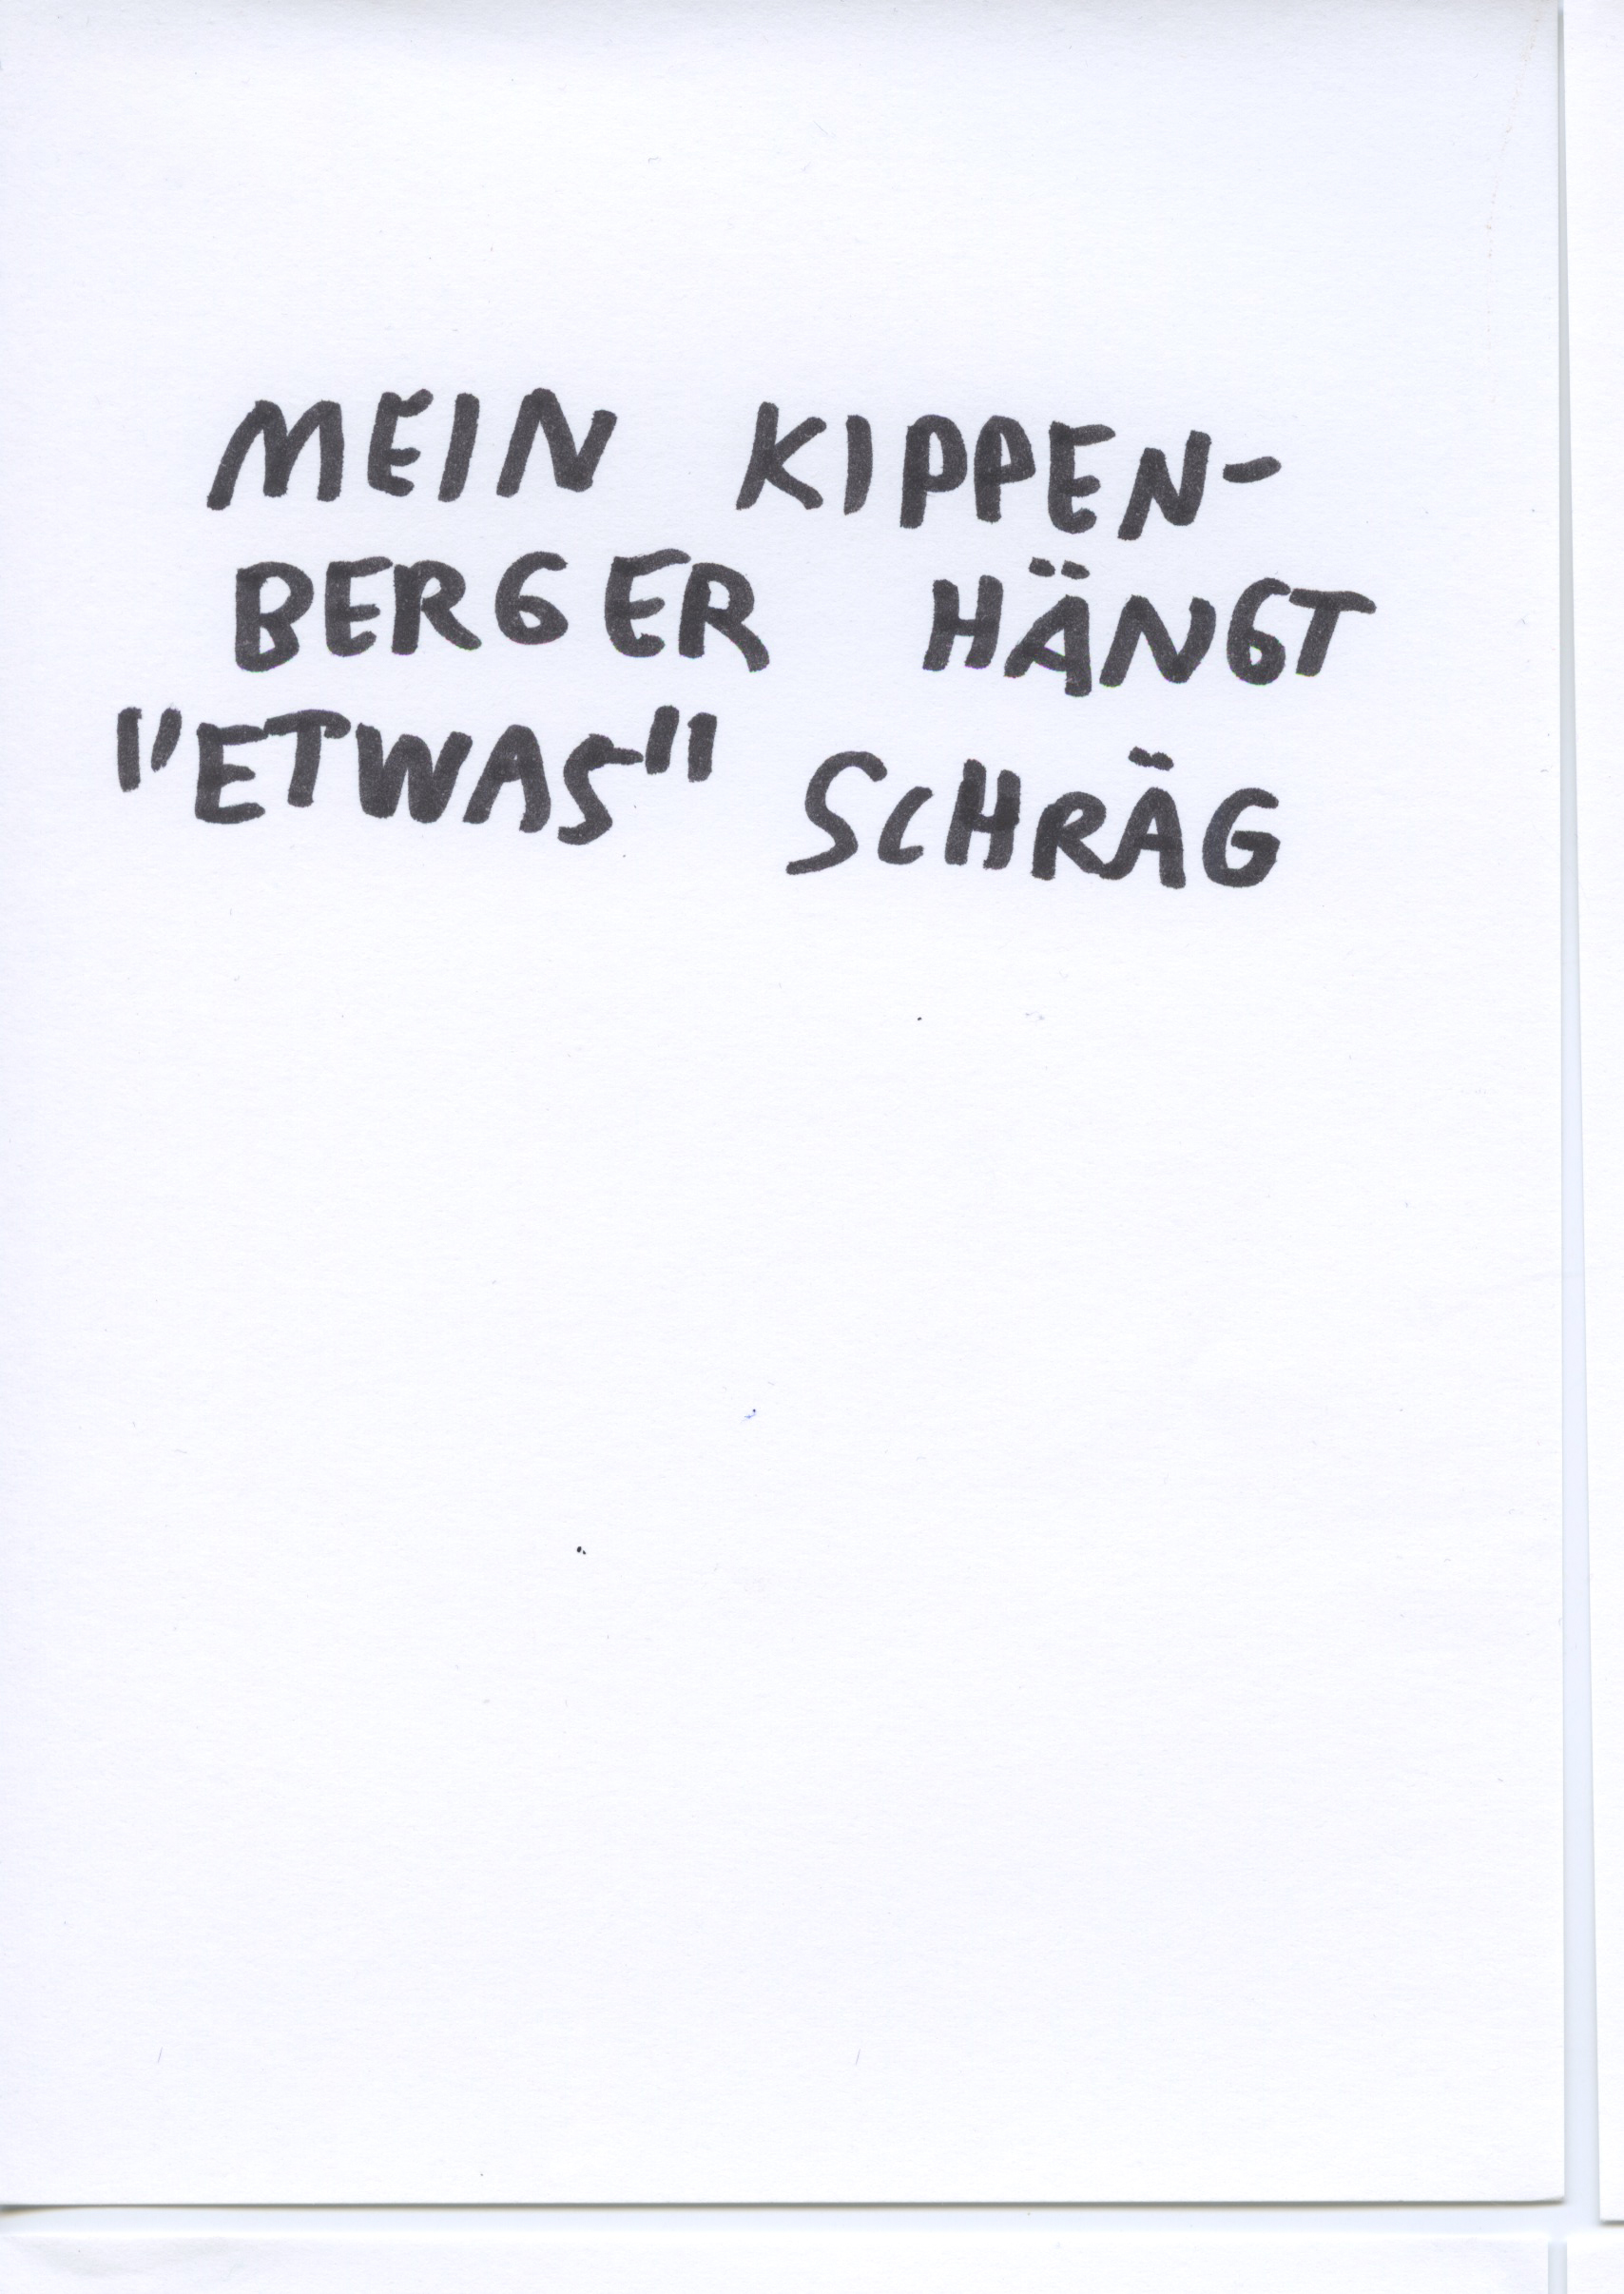 MEIN KIPPEN-
BERGER HÄNGT
"ETWAS" SCHRÄG